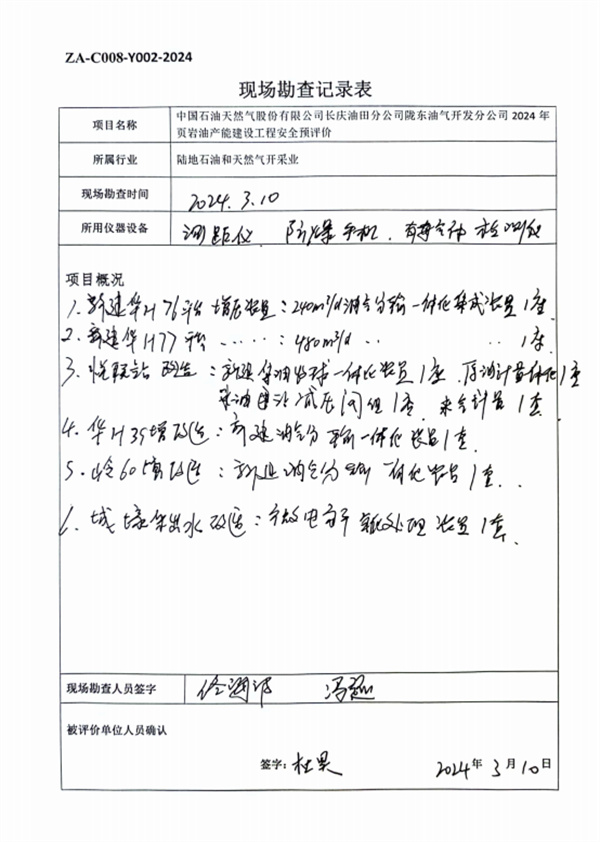 ZA-C008-Y002-2024
现场勘查记录表
项目名称
中国石油天然气股份有限公司长庆油田分公司陇东油气开发分公司 2024 年
页岩油产能建设工程安全预评价
所属行业 陆地石油和天然气开采业
现场勘查时间 2024.3.10
所用仪器设备 测距仪 防爆手机 有毒气体检测仪
项目概况
1. 新建华H76平台增压装置：240m³/d油气分输一体化集成装置1座
2. 新建华H77平台 ……：480m³/d 〃 〃 1座
3. 悦联站改造：新建集油收球一体化装置1座
来油进站减压阀组1套 来油计量1套
4. 华H35增改造：新建油气分输一体化装置1套
5. 岭60增改造：新建油气分输一体化装置1套
6. 采出水改造：微电 处理装置1套
现场勘查人员签字 冯
被评价单位人员确认
签字：杜昊 2024年3月10日